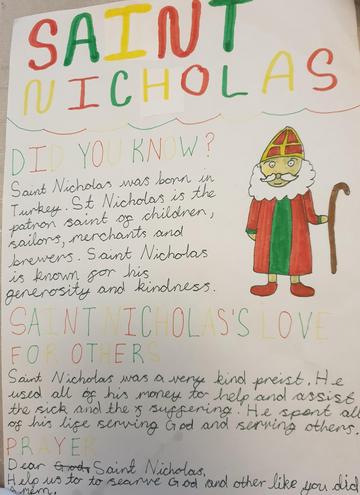 SAINT
NICHOLAS
DID YOU KNOW?
Saint Nicholas was born in
Turkey. St Nicholas is the
patron saint of children,
sailors, merchants and
brewers. Saint Nicholas
is known for his
generosity and kindness.
SAINT NICHOLAS'S LOVE
FOR OTHERS
Saint Nicholas was a very kind preist. He
used all of his money to help and assist
the sick and the suffering. He spent all
of his life serving God and serving others.
PRAYER
Dear God, Saint Nicholas,
Help us to to searve God and other like you did
Amen.